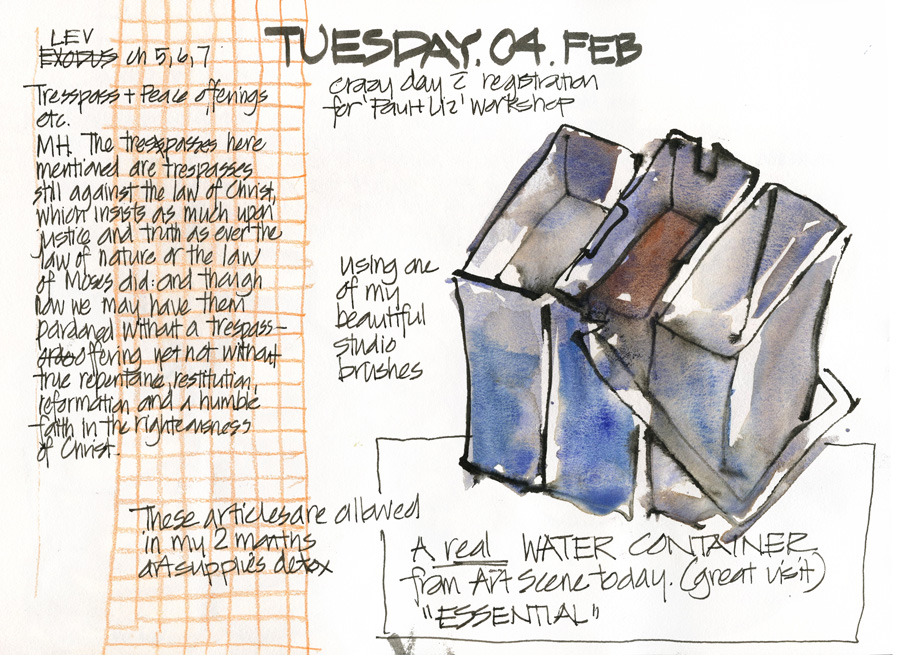 TUESDAY. 04. FEB
crazy day c̄ registration
for 'Paul+Liz' Workshop
LEV
EXODUS ch 5, 6, 7
Tresspass + Peace offerings
etc.
MH. The tresspasses here
mentioned are trespasses
still against the law of Christ,
which insists as much upon
justice and truth as ever the
law of nature or the law
of Moses did: and though
now we may have them
pardoned without a trespass-
offering yet not without
true repentance, restitution,
reformation and a humble
faith in the righteousness
of Christ.
Using one
of my
beautiful
studio
brushes
These articles are allowed
in my 2 months
art supplies detox
A real WATER CONTAINER
from Art Scene today. (great visit)
"ESSENTIAL"